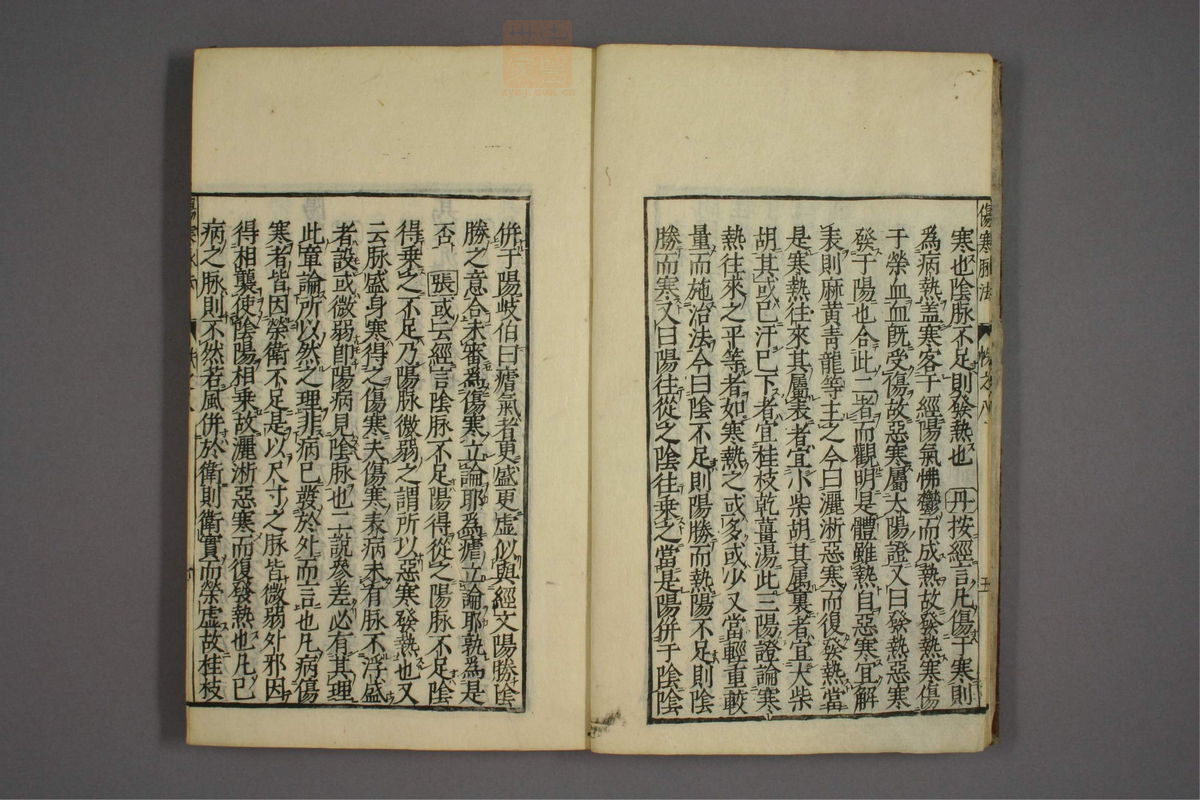 傷寒脉法
五
寒也陰脉不足則發熱也丹按經言凡傷于寒則
爲病熱盖寒客于經陽氣怫鬱而成熱故發熱寒傷
于榮血血既受傷故惡寒屬太陽證又曰發熱惡寒
發于陽也合此二者而觀明是體雖熱自惡寒宜解
表則麻黄青龍等主之今曰灑淅惡寒而復發熱當
是寒熱往來其屬表者宜小柴胡其属裏者宜大柴
胡其或已汗已下者宜桂枝乾薑湯此三陽證論寒
熱往來之平等者如寒熱之或多或少又當輕重較
量而施治法今曰陰不足則陽勝而熱陽不足則陰
勝而寒又曰陽往從之陰往乗之當是陽併于陰陰
併于陽岐伯曰瘧氣者更盛更虚似與經文陽勝陰
勝之意合未審爲傷寒立論耶爲瘧立論耶孰爲是
否張或云經言陰脉不足陽得從之陽脉不足陰
得乗之不足乃陽脉微弱之謂所以惡寒發熱也又
云脉盛身寒得之傷寒夫傷寒表病未有脉不浮盛
者設或微弱即陽病見陰脉也二說參差必有其理
此章論所以然之理非病已發於外而言也凡病傷
寒者皆因榮衛不足是以尺寸之脉皆微弱外邪因
得相襲使陰陽相乗故灑淅惡寒而復發熱也凡已
病之脉則不然若風併於衛則衛實而榮虚故桂枝